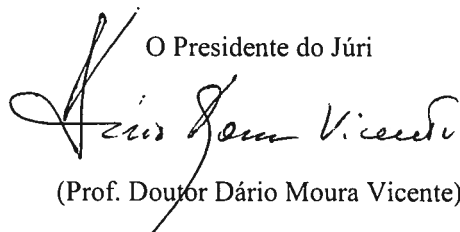 O Presidente do Júri
Dário Moura Vicente
(Prof. Doutor Dário Moura Vicente)